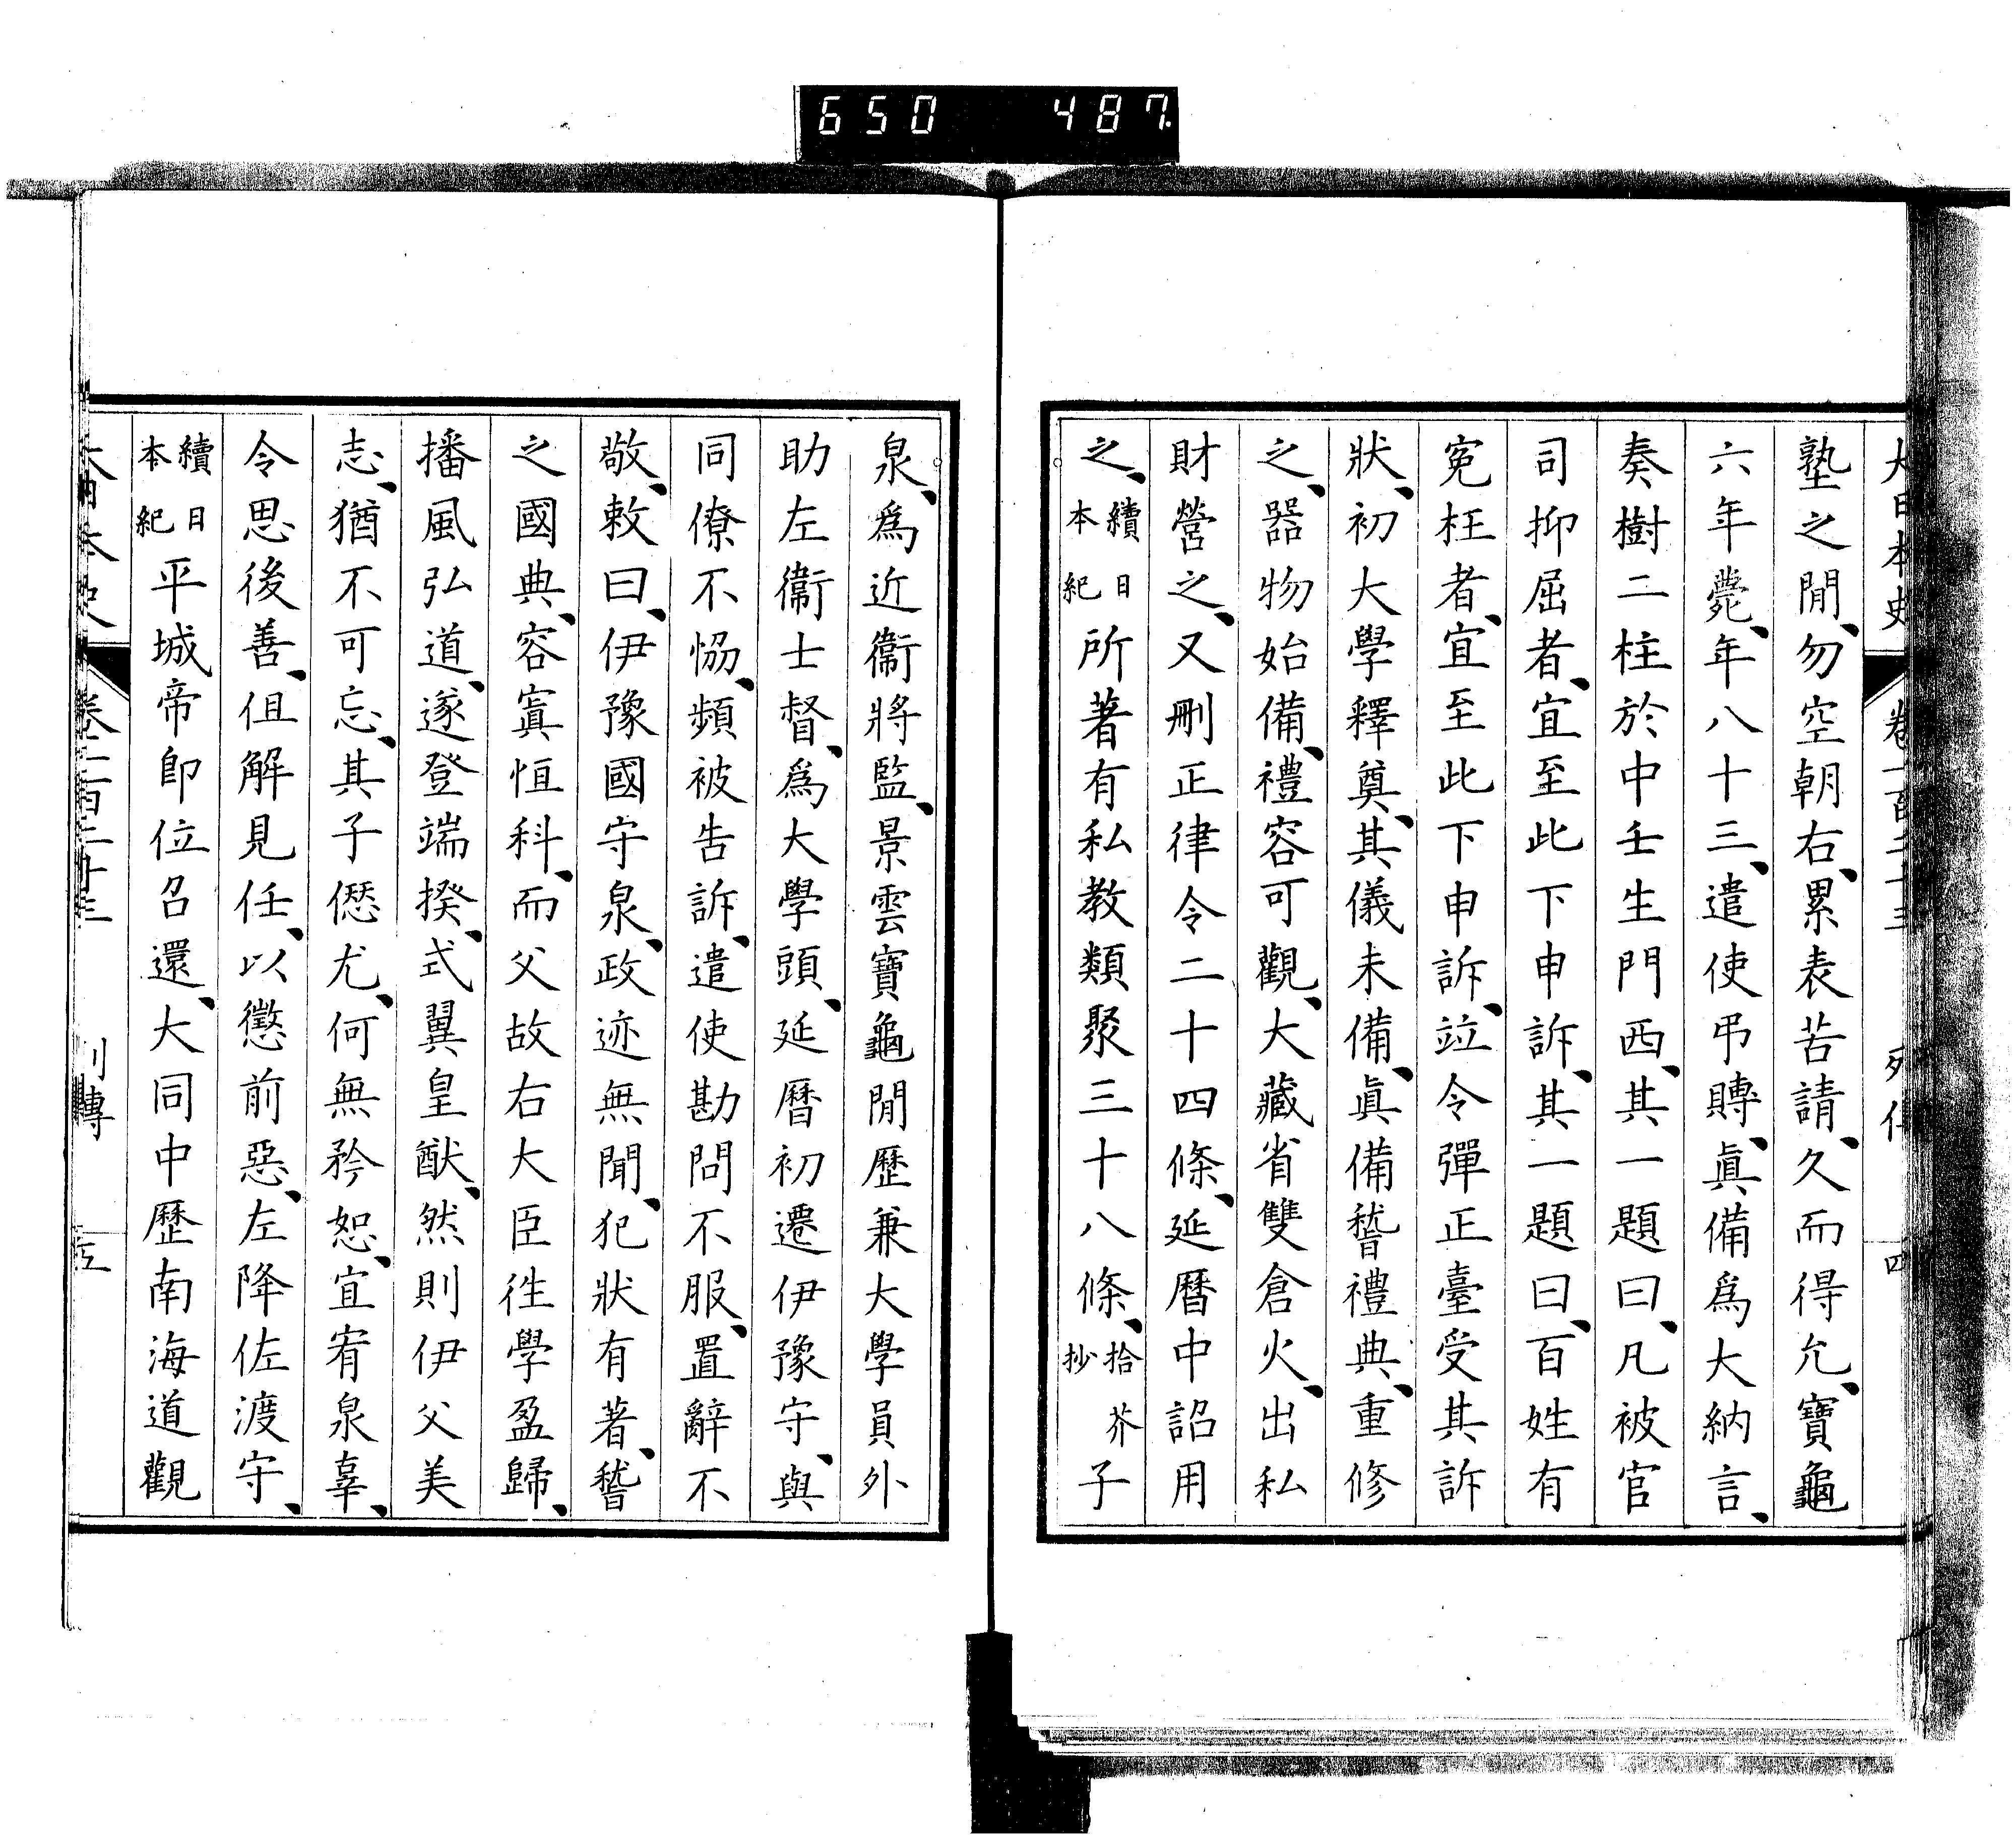 650 487.
大日本史 卷一百二十三 列傳 四
塾之閒、勿空朝右、累表苦請、久而得允、寶龜
六年薨、年八十三、遣使弔賻、眞備爲大納言、
奏樹二柱於中壬生門西、其一題曰、凡被官
司抑屈者、宜至此下申訴、其一題曰、百姓有
冤枉者、宜至此下申訴、竝令彈正臺受其訴
狀、初大學釋奠、其儀未備、眞備稽禮典、重修
之、器物始備、禮容可觀、大藏省雙倉火、出私
財營之、又刪正律令二十四條、延曆中詔用
之、續日本紀所著有私教類聚三十八條、拾芥抄子
泉、爲近衞將監、景雲寶龜閒歷兼大學員外
助左衞士督、爲大學頭、延曆初遷伊豫守、與
同僚不恊、頻被告訴、遣使勘問不服、置辭不
敬、敕曰、伊豫國守泉、政迹無聞、犯狀有著、稽
之國典、容寘恒科、而父故右大臣徃學盈歸、
播風弘道、遂登端揆、式翼皇猷、然則伊父美
志、猶不可忘、其子愆尤、何無矜恕、宜宥泉辜、
令思後善、但解見任、以懲前惡、左降佐渡守、
續日本紀平城帝卽位召還、大同中歷南海道觀
大日本史 卷一百二十三 列傳 五